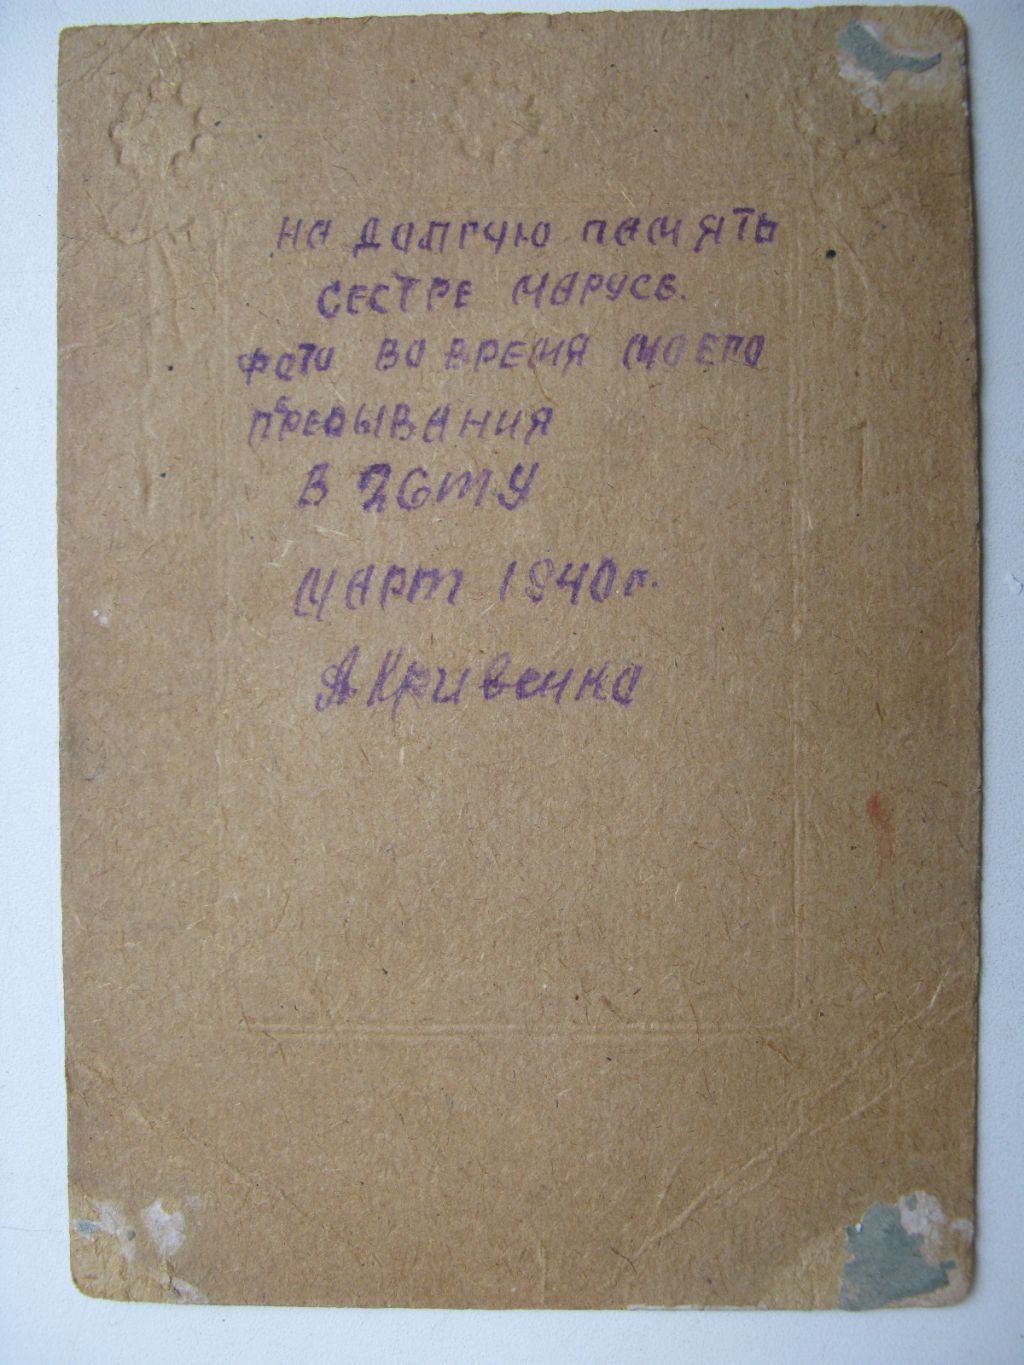 НА ДОЛГУЮ ПАМЯТЬ
СЕСТРЕ МАРУСЕ.
ФОТО ВО ВРЕМЯ МОЕГО
ПРЕБЫВАНИЯ
В 26МТУ
МАРТ 1940 г.
А Кривенко